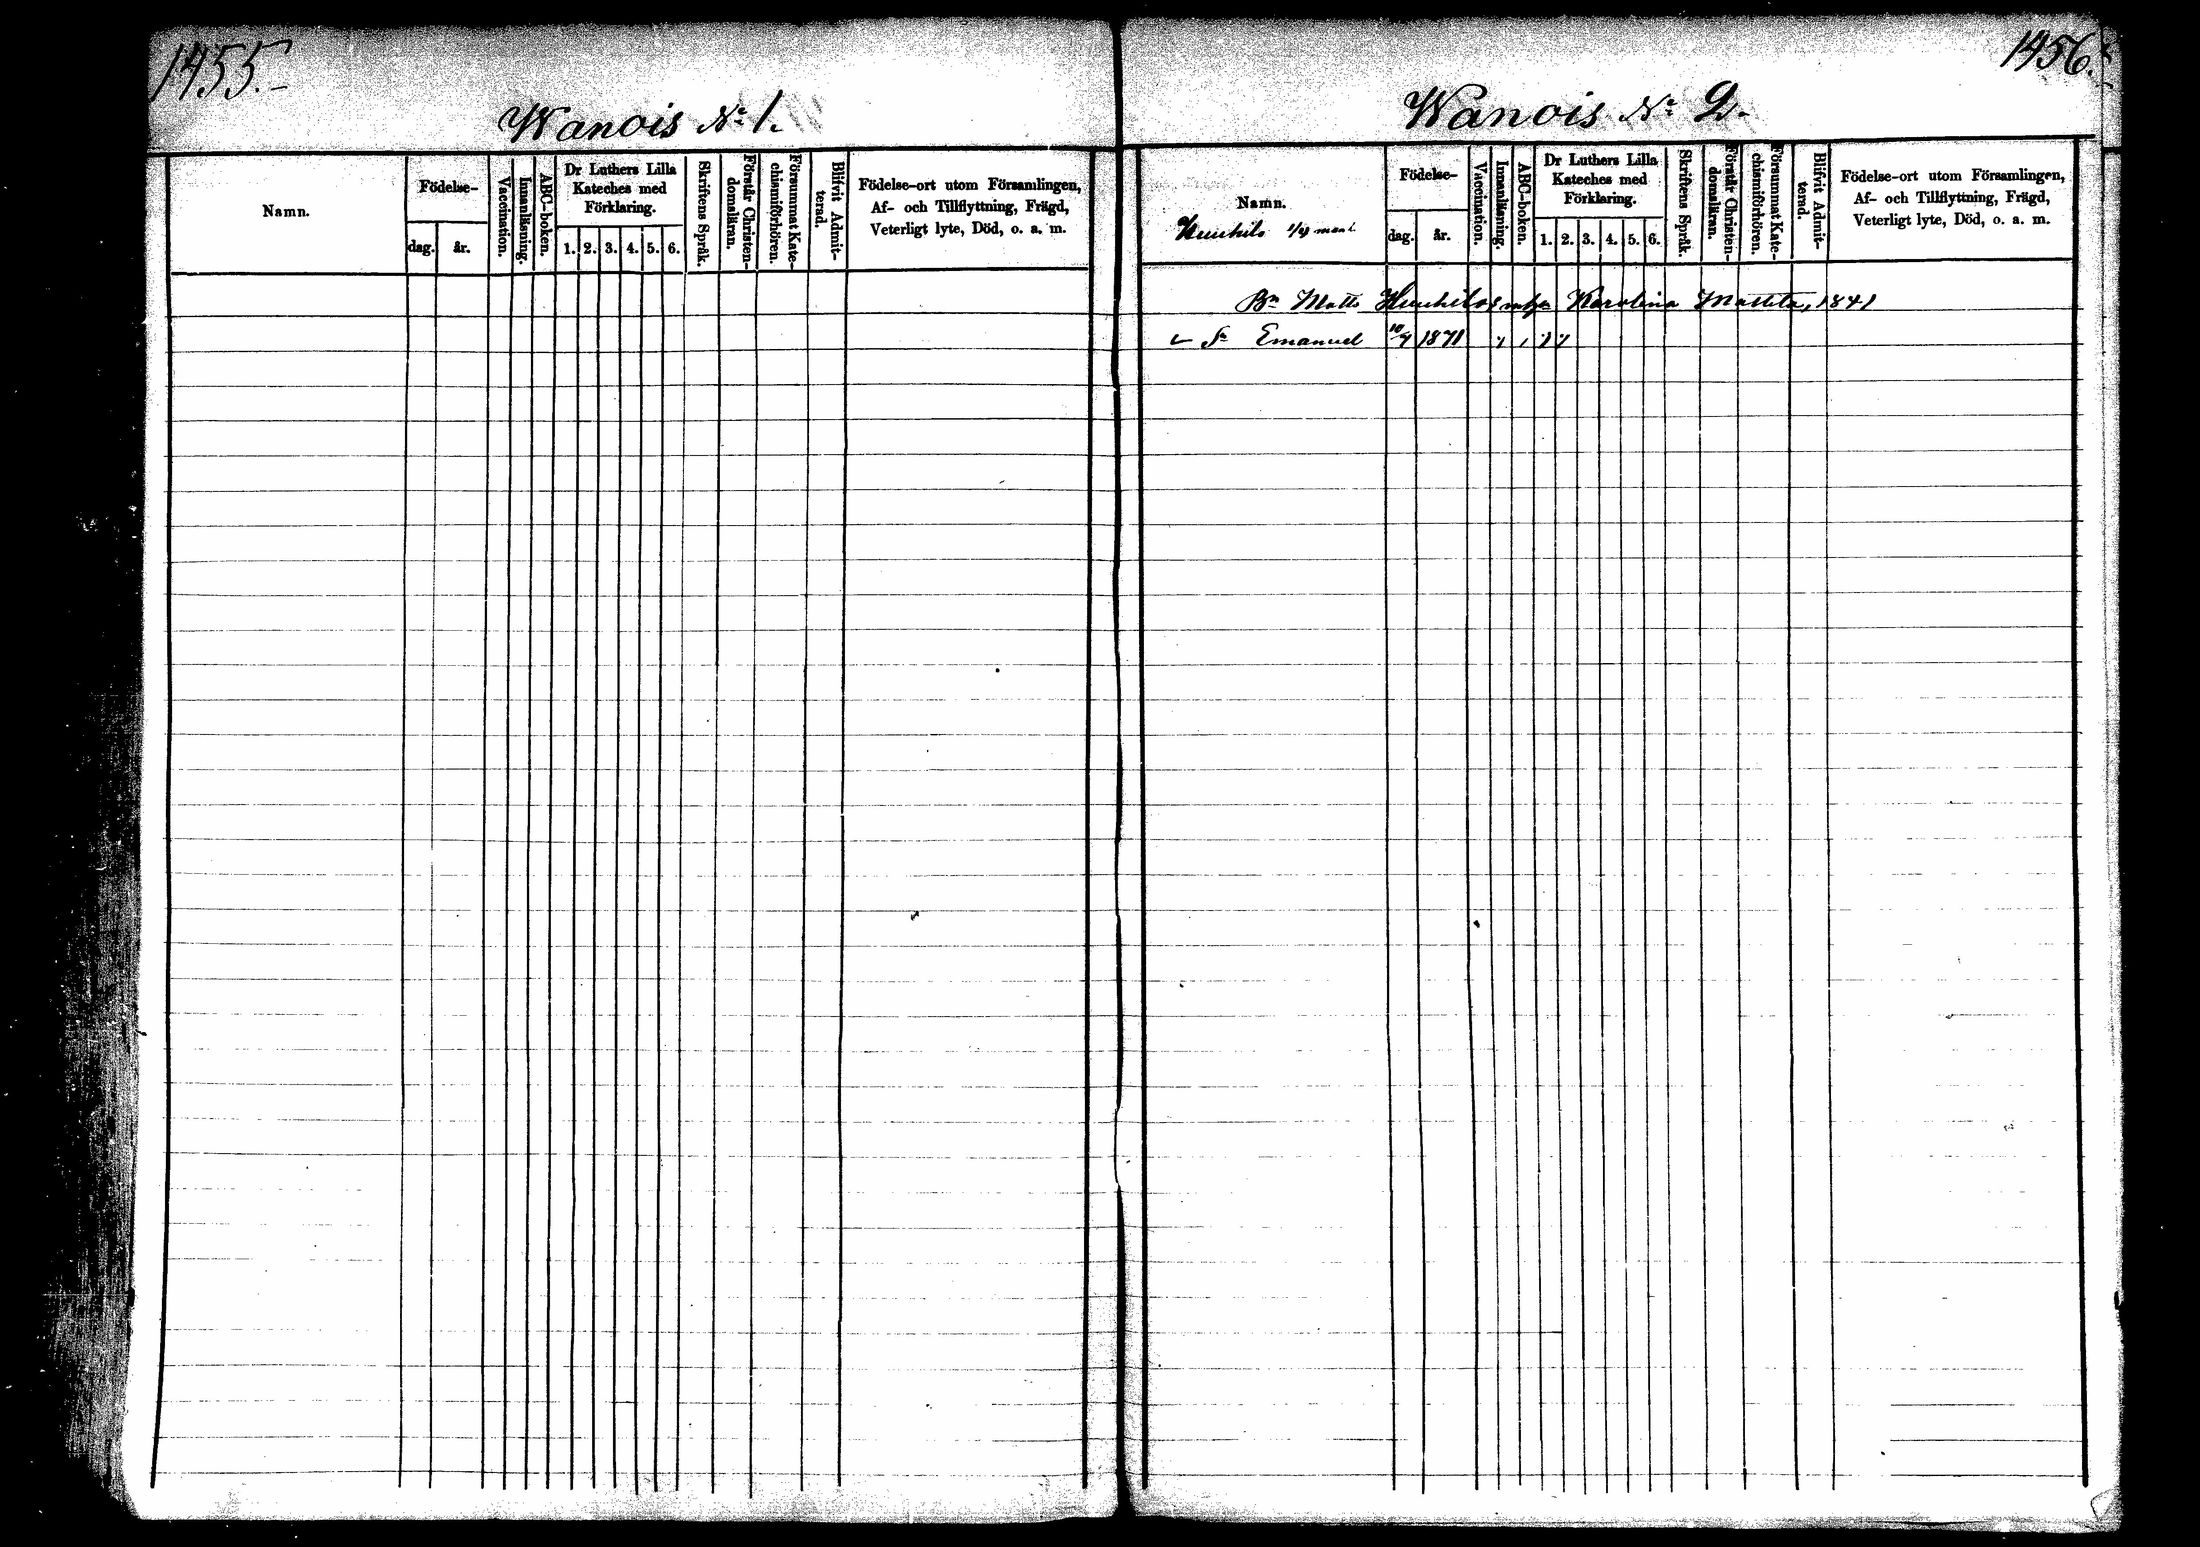 1455.
Wanois No 1.
Namn.
Födelse-
dag. år.
Vaccination.
Innanläsning.
ABC-boken.
Dr Luthers Lilla
Kateches med
Förklaring.
1. 2. 3. 4. 5. 6.
Skriftens Språk.
Förstår Christen-
domsläran.
Försummat Kate-
chismiförhören.
Blifvit Admit-
terad.
Födelse-ort utom Församlingen,
Af- och Tillflyttning, Frägd,
Veterligt lyte, Död, o. a. m.
1456.
Wanois No 2.
Namn.
Födelse-
dag. år.
Vaccination.
Innanläsning.
ABC-boken.
Dr Luthers Lilla
Kateches med
Förklaring.
1. 2. 3. 4. 5. 6.
Skriftens Språk.
Förstår Christen-
domsläran.
Försummat Kate-
chismiförhören.
Blifvit Admit-
terad.
Födelse-ort utom Församlingen,
Af- och Tillflyttning, Frägd,
Veterligt lyte, Död, o. a. m.
Bn Matts Karolina 1841
Sn Emanuel 10/4 1871